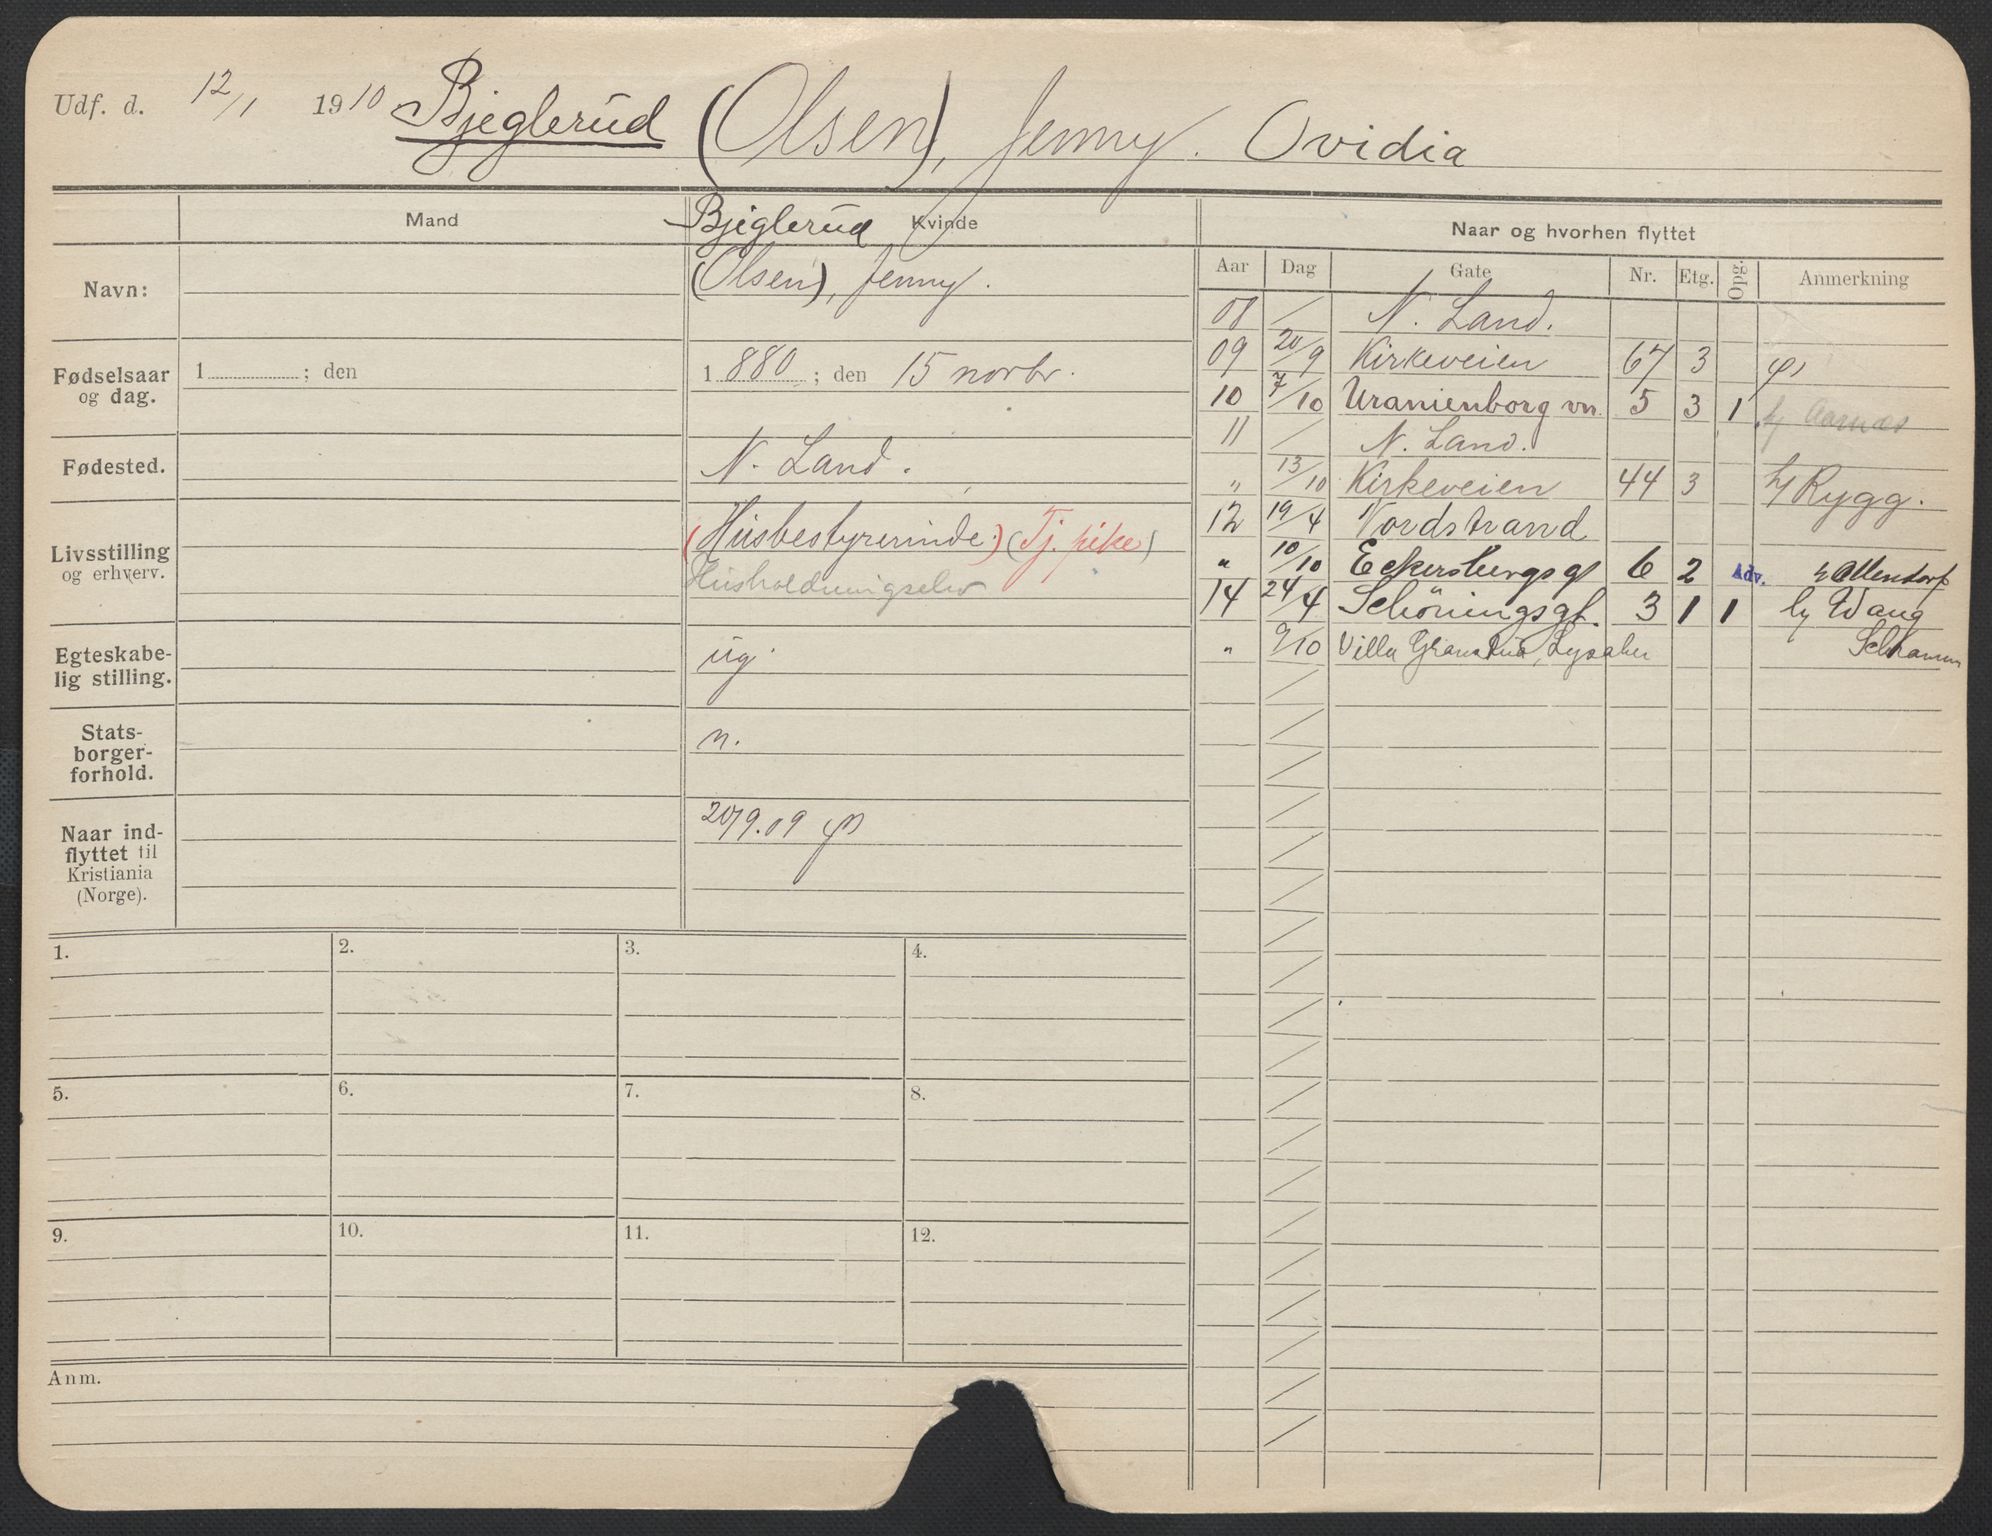 Udf. d. 12/1 1910 Bjeglerud (Olsen), Jenny. Ovidia
Mand
Bjeglerud Kvinde
Navn: (Olsen), Jenny.
Fødselsaar og dag. 1 ; den
1 880 ; den 15 novbr.
Fødested. N. Land.
Livsstilling og erhverv. (Husbestyrerinde.) (Tj. pike)
Husholdningselev
Egteskabe-
lig stilling. ug.
Stats-
borger-
forhold. n.
Naar ind-
flyttet til
Kristiania
(Norge). 20/9.09
1. 2. 3. 4.
5. 6. 7. 8.
9. 10. 11. 12.
Anm.
Naar og hvorhen flyttet
Aar Dag Gate Nr. Etg. Opg. Anmerkning
08 / N. Land.
09 20/9 Kirkeveien 67 3
10 7/10 Uranienborg vn. 5 3 1 h/ Aarnæs
11 / N. Land.
" 13/10 Kirkeveien 44 3 h/ Rygg.
12 19/4 Nordstrand
" 10/10 Eckersbergsgt 6 2 Adv.
14 24/4 Schöningsgt. 3 1 1 h/ Wang
" 9/10 Villa Lysaker